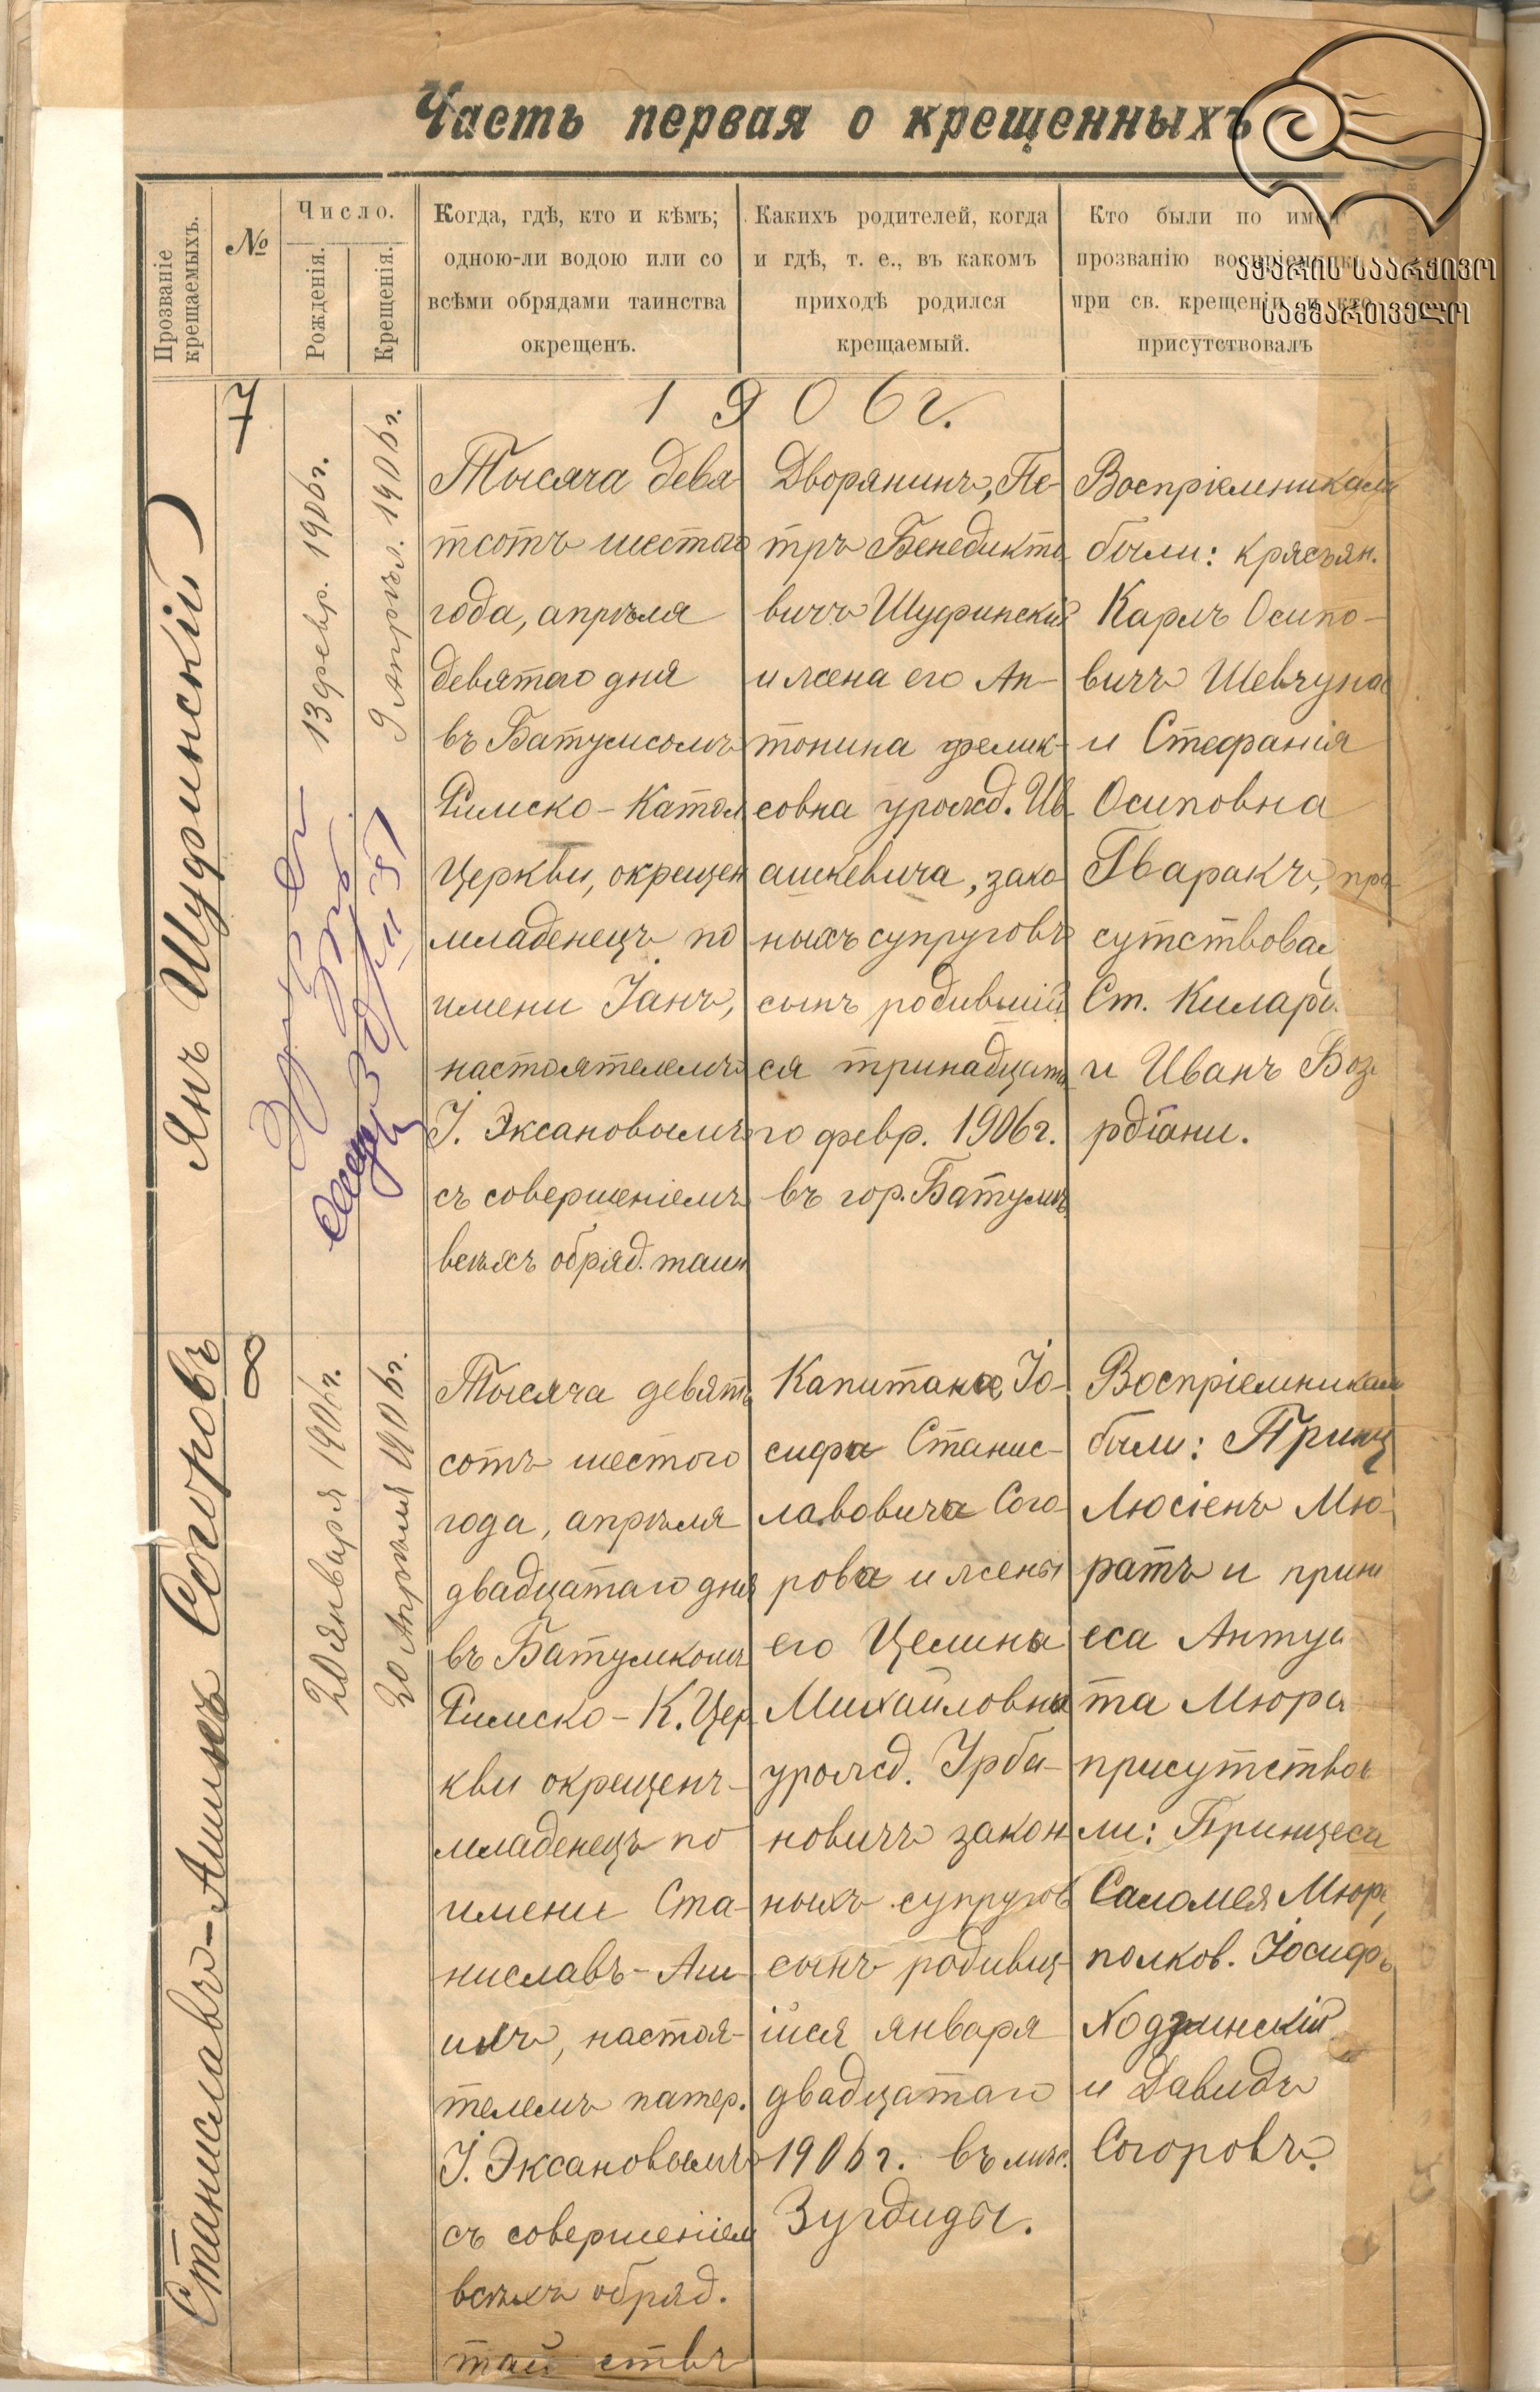 Часть первая о крещенныхъ
აჭარის საარქივო
სამმართველო
Прозваніе
крещаемыхъ.
№
Число.
Рожденія.
Крещенія.
Когда, гдѣ, кто и кѣмъ;
одною-ли водою или со
всѣми обрядами таинства
окрещенъ.
Какихъ родителей, когда
и гдѣ, т. е., въ какомъ
приходѣ родился
крещаемый.
Кто были по
прозванію
при св. крещеніи и кто
присутствовалъ
1906г.
Янъ Шуфинскій
7
13 февр. 1906г.
9 апрѣл. 1906г.
Тысяча девя
тсотъ шестого
года, апрѣля
девятаго дня
въ Батумсомъ
Римско-Катол
Церкви, окрещен
младенецъ по
имени Іанъ,
настоятелемъ
І. Эксановымъ
съ совершеніемъ
всѣхъ обряд. таин
Дворянинъ, Пе-
тръ Бенедикто
вичъ Шуфинскій
и жена его Ан-
тонина Феликс-
совна урожд. Ив
ашкевича, зако
ныхъ супруговъ
сынъ родившій
ся тринадцата
го февр. 1906г.
въ гор. Батумѣ
Воспріемниками
были: крястьян.
Карлъ Осипо-
вичъ Шевчука
и Стефанія
Осиповна
Гваракъ, при
сутствова
Ст. Килар
и Иванъ Боз
рдіани.
Станиславъ-Ашилъ Согоровъ
8
20 января 1906г.
20 Апрѣля 1906г.
Тысяча девять
сотъ шестого
года, апрѣля
двадцатаго дня
въ Батумкомъ
Римско-К. Цер
кви окрещенъ-
младенецъ по
имени Ста-
ниславъ-Аш-
илъ, настоя-
телемъ патер.
І. Эксановымъ
съ совершеніем
всѣхъ обряд.
таи ствъ
Капитана, Іо-
сифа Станис-
лавовича Сого-
рова и жены
его Целины
Михайловны
урожд. Урба-
новичъ закон
ныхъ супругов
сынъ родивш-
ійся января
двадцатаго
1906г. въ мѣс.
Зугдиды.
Воспріемникам
были: Принц
Люсіенъ Мю-
ратъ и принц
еса Антуа
та Мюра
присутствов
ли: Принцеса
Саломея Мюра
полков. Іосифъ
Ходзинскій
и Давидъ
Согоровъ.